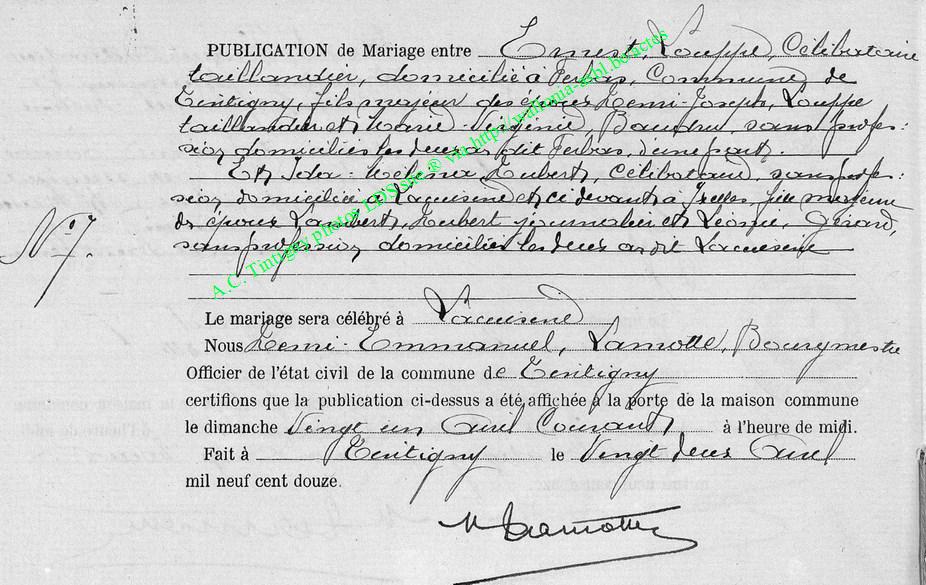 PUBLICATION de Mariage entre Ernest, Louppe, Célibataire
taillandier, domicilié à Ferbas, Commune de
Tintigny, fils majeur des époux Henri-Joseph, Louppe
taillandier et Marie Virginie, Baudru, sans profes:
sion domiciliés les deux au dit Ferbas, d'une part.
Et, Ida Helena, Hubert, Célibataire, sans profes:
sion domiciliée à Lacuisine et ci devant à Ixelles, fille majeure
des époux Lambert, Hubert journalier et Léonie, Gérard,
sans profession, domiciliés les deux au dit Lacuisine
N° 7.
Le mariage sera célébré à Lacuisine
Nous Henri-Emmanuel, Lamotte, Bourgmestre
Officier de l'état civil de la commune de Tintigny
certifions que la publication ci-dessus a été affichée à la porte de la maison commune
le dimanche Vingt un Avril Courant, à l'heure de midi.
Fait à Tintigny le Vingt deux Avril
mil neuf cent douze.
H Lamotte
A.C. Tintigny photos LDS site ® via http://wallonia-asbl.be/actes